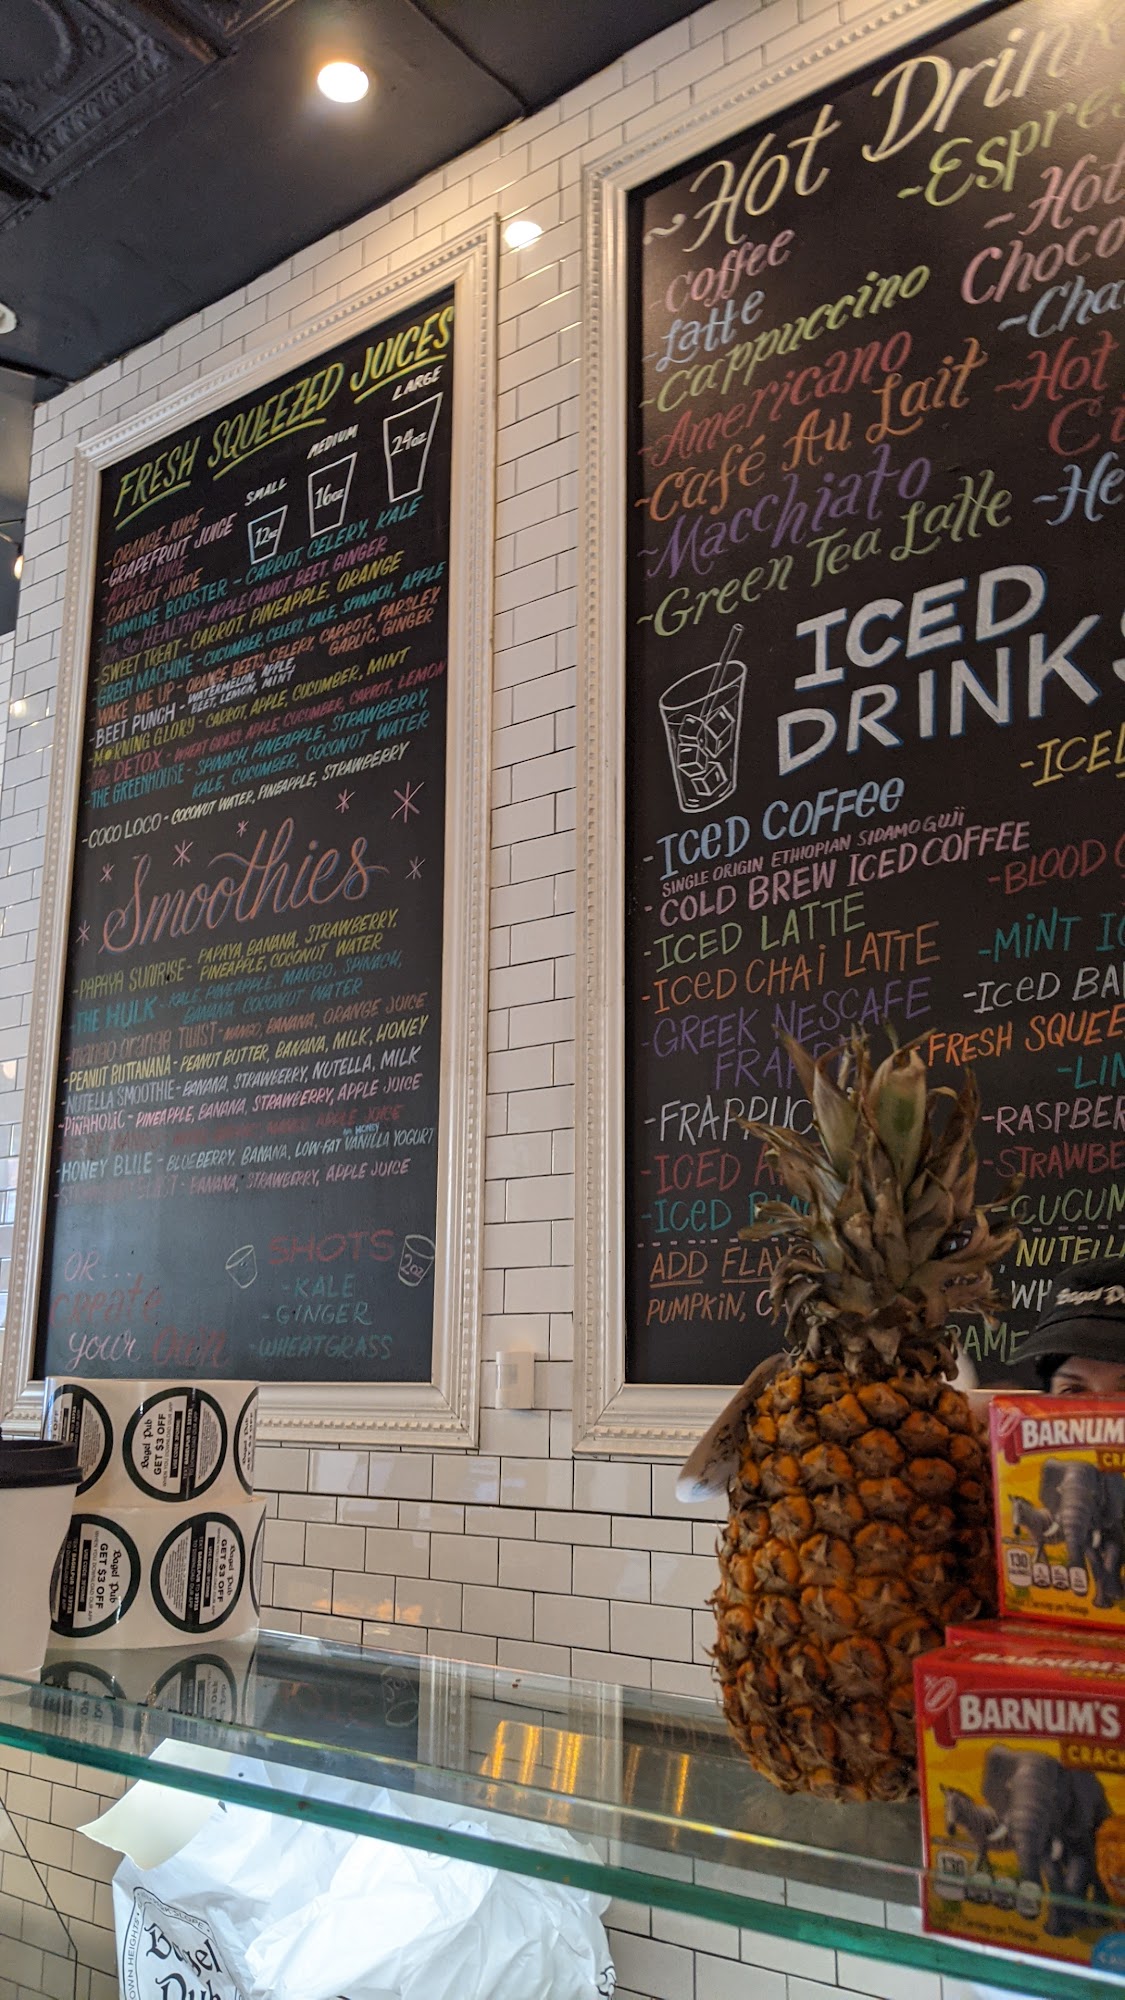 FRESH SQUEEZED JUICES
SMALL MEDIUM LARGE
12oz 16oz 24oz
- ORANGE JUICE
- GRAPEFRUIT JUICE
- APPLE JUICE
- CARROT JUICE
- IMMUNE BOOSTER - CARROT, CELERY, KALE
SO HEALTHY - APPLE, CARROT, BEET, GINGER
- SWEET TREAT - CARROT, PINEAPPLE, ORANGE
- GREEN MACHINE - CUCUMBER, CELERY, KALE, SPINACH, APPLE
- WAKE ME UP - ORANGE, BEETS, CELERY, CARROT, PARSLEY,
GARLIC, GINGER
- BEET PUNCH - WATERMELON, APPLE,
BEET, LEMON, MINT
- MORNING GLORY - CARROT, APPLE, CUCOMBER, MINT
- The DETOX - WHEAT GRASS, APPLE, CUCUMBER, CARROT, LEMON
- THE GREENHOUSE - SPINACH, PINEAPPLE, STRAWBERRY,
KALE, CUCOMBER, COCONUT WATER
- COCO LOCO - COCONUT WATER, PINEAPPLE, STRAWBERRY
Smoothies
- PAPAYA SUNRISE - PAPAYA, BANANA, STRAWBERRY,
PINEAPPLE, COCONUT WATER
- THE HULK - KALE, PINEAPPLE, MANGO, SPINACH,
BANANA, COCONUT WATER
- mango orange TWIST - MANGO, BANANA, ORANGE JUICE
- PEANUT BUTTANANA - PEANUT BUTTER, BANANA, MILK, HONEY
- NUTELLA SMOOTHIE - BANANA, STRAWBERRY, NUTELLA, MILK
- PINAHOLIC - PINEAPPLE, BANANA, STRAWBERRY, APPLE JUICE
MANGO, APPLE JUICE
- HONEY BLUE - BLUEBERRY, BANANA, HONEY LOW-FAT VANILLA YOGURT
- BANANA, STRAWBERRY, APPLE JUICE
OR...
create
your own
SHOTS
2oz
- KALE
- GINGER
- WHEATGRASS
~Hot Drin
- Coffee
- Latte
- Cappuccino
- Americano
- Café Au Lait
~Macchiato
~Green Tea Latte
- Espre
~Hot
Choco
~Cha
~Hot
Ci
~He
ICED
DRINKS
- ICED COFFee
SINGLE ORIGIN ETHIOPIAN SIDAMO GUJI
- COLD BREW ICED COFFEE
- ICED LATTE
- ICED CHAi LATTE
GREEK NESCAFE
FRAPP
- FRAPPUC
- ICED A
- ICED
ADD FLAV
PUMPKIN, C
- ICED
- BLOOD
- MINT IC
- ICED BA
FRESH SQUEE
- LIM
- RASPBER
- STRAWBE
- CUCUM
, NUTELLA
WH
RAME
Bagel Pub
GET $3 OFF
Bagel Pub
GET $3 OFF
BARNUM'S
CRA
130
BARNUM'S
CRACK
130
OWN HEIGHTS
SLOPE
Bagel
Pub